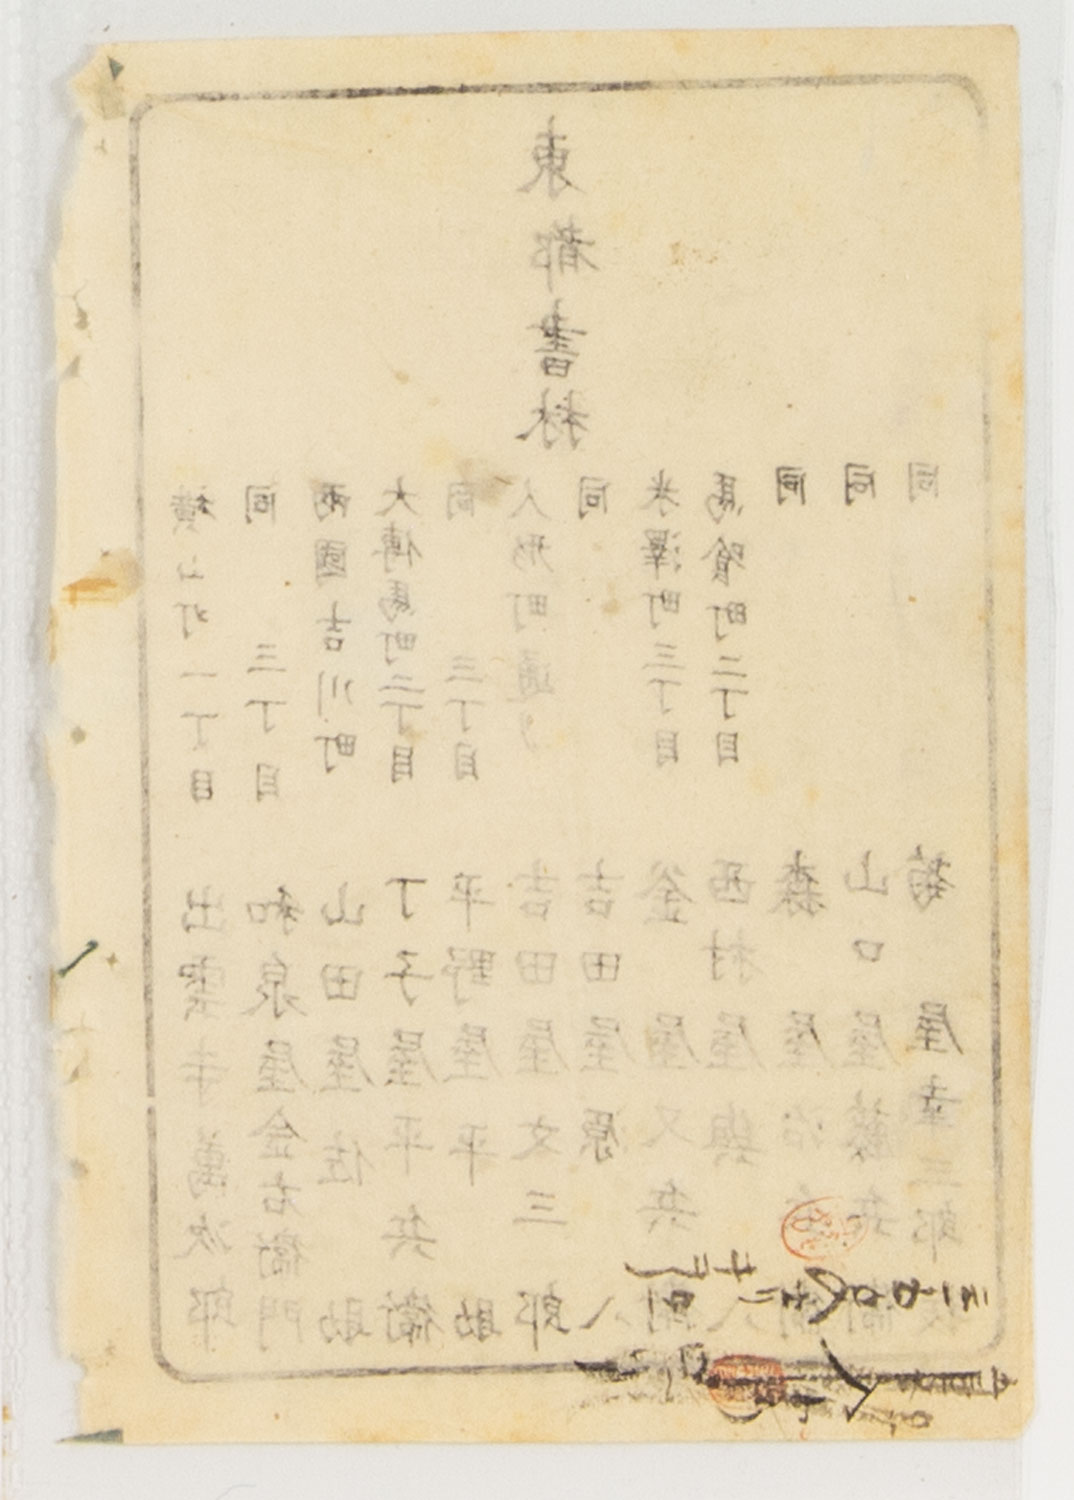 東都書林
横山町一丁目 出雲寺萬次郎
同 三丁目 和泉屋金右衛門
兩國吉川町 山田屋佐助
大傳馬町二丁目 丁子屋平兵衛
同 三丁目 平野屋平助
人形町通り 吉田屋文三郎
同 吉田屋原八
米澤町三丁目 釜屋又兵衛
馬喰町二丁目 西村屋與八
同 森屋治兵衛
同 山口屋藤兵衛
同 菊屋幸三郎